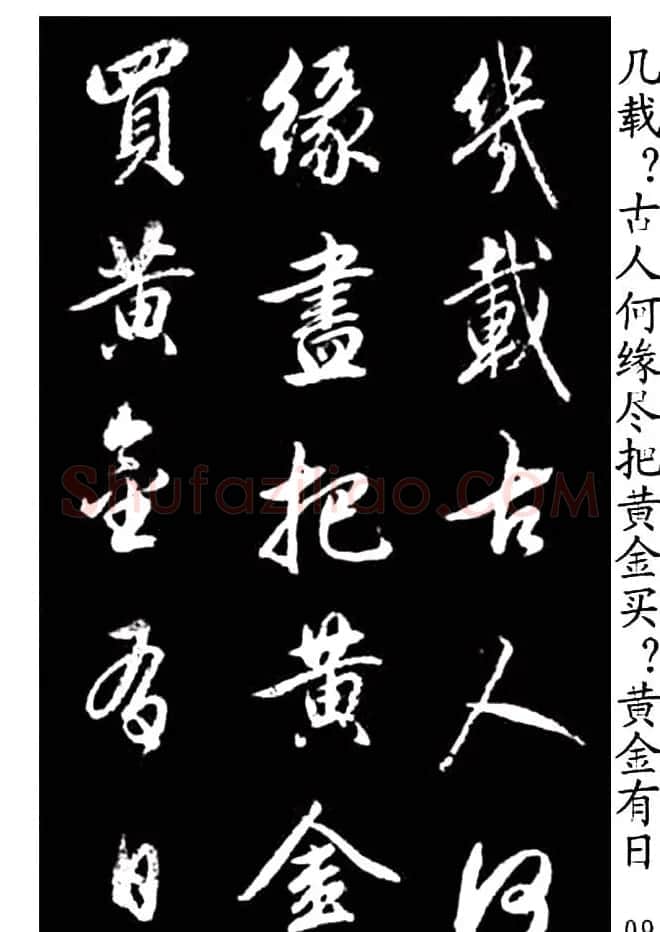 几载？古人何缘尽把黄金买？黄金有日
幾載古人何
緣盡把黄金
買黄金有日
Shufaziliao.COM